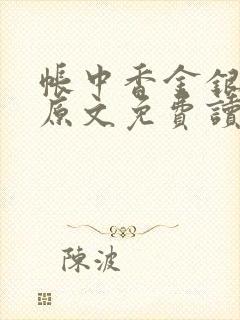 帳中香金銀
原文免費讀
陳波